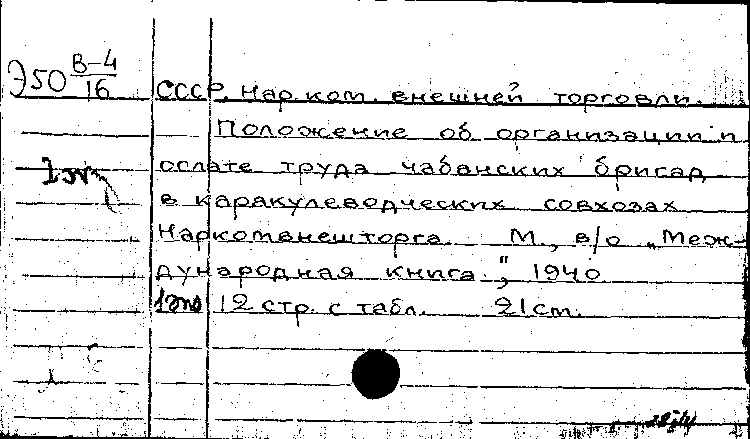 Э50 В-4/16
СССР. Нар. ком. внешней торговли.
Положение об организации и
оплате труда чабанских бригад
в каракулеводческих совхозах
Наркомвнешторга. М., в/о „Меж-
дународная книга", 1940
12 стр. с табл. 21 см.